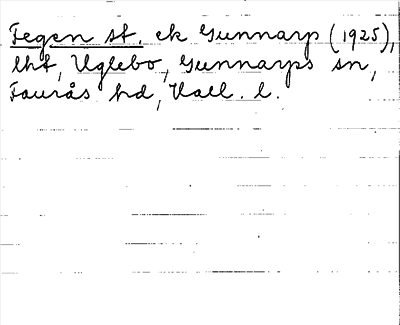 Fegen st. ek Gunnarp (1925),
lht, Uglebo, Gunnarps sn,
Faurås hd, Hall. l.